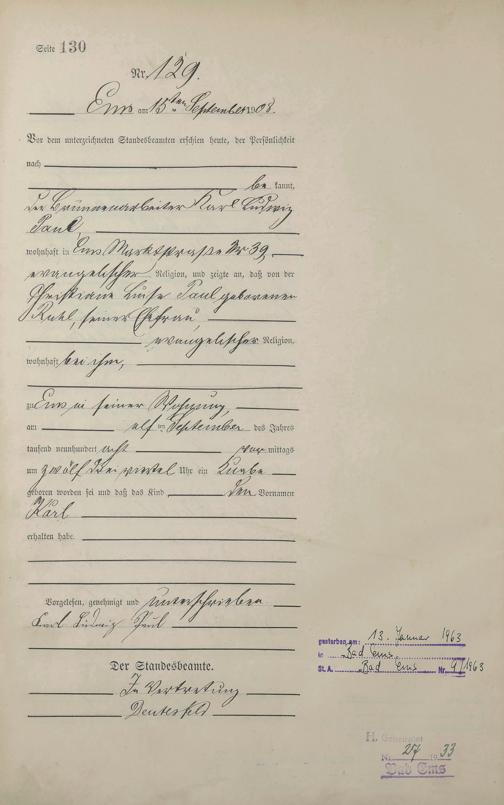 Seite 130
Nr. 129.
Ems am 15ten September 1908.
Vor dem unterzeichneten Standesbeamten erschien heute, der Persönlichkeit
nach
be kannt,
der Brunnenarbeiter Karl Ludwig
Paul,
wohnhaft in Ems Marktstraße Nr 39,
evangelischer Religion, und zeigte an, daß von der
Christiane Luise Paul geborenen
seiner Ehefrau,
evangelischer Religion,
wohnhaft bei ihm,
zu Ems in seiner Wohnung,
am elf ten September des Jahres
tausend neunhundert acht vor mittags
um zwölf drei viertel Uhr ein Knabe
geboren worden sei und daß das Kind den Vornamen
Karl
erhalten habe.
Vorgelesen, genehmigt und unterschrieben
Karl Ludwig Paul
Der Standesbeamte.
In Vertretung
gestorben am: 13. Januar 1963
in Bad Ems
St. A. Bad Ems Nr. 9/1963
H. Geheiratet
Nr. 27 1933
Bad Ems